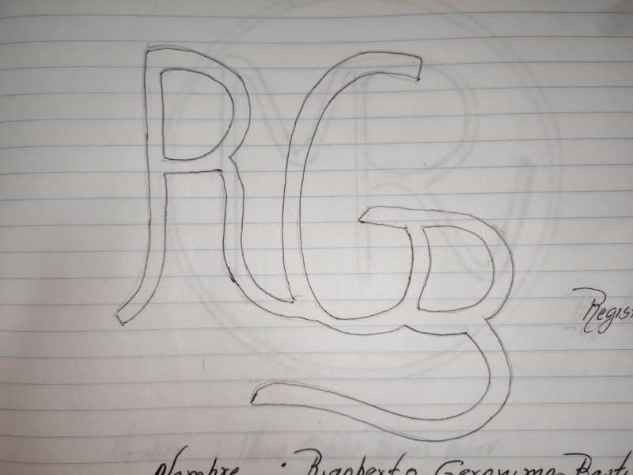 RGB
Regis
Nombre : Rigoberto Geronimo Bart